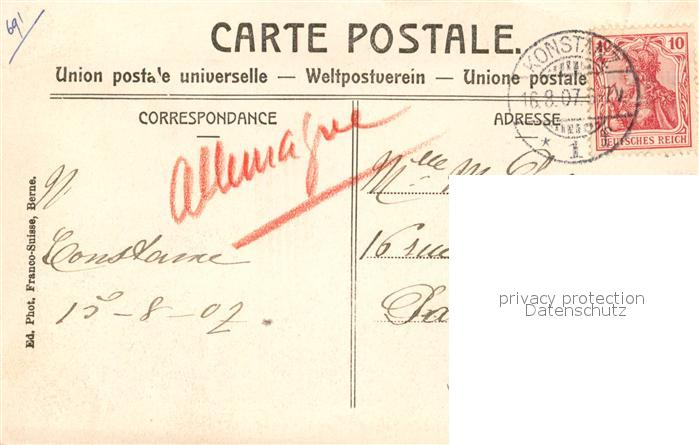 691
CARTE POSTALE.
Union postale universelle — Weltpostverein — Unione postale
CORRESPONDANCE
ADRESSE
KONSTANZ
16.8.07.
* 1
10
10
DEUTSCHES REICH
Allemagne
Mlle M.
N
16 rue
Constance
15-8-07
Ed. Phot. Franco-Suisse, Berne.
privacy protection
Datenschutz